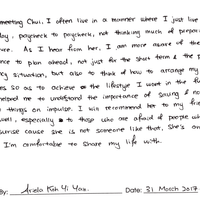 meeting Chui, I often live in a manner where I just live
day, paycheck to paycheck, not thinking much of
As I hear from her, I am more aware of the
to plan ahead, not just for the short term & the
situation, but also to think of how to arrange my
so as to achieve the lifestyle I want in the
helped me to understand the importance of saving &
things on impulse. I will recommend her to my
well, especially to those who are afraid of people
cause she is not someone like that, she's
I'm comfortable to share my life with.
By: Koh Yi Date: 31 March 2017